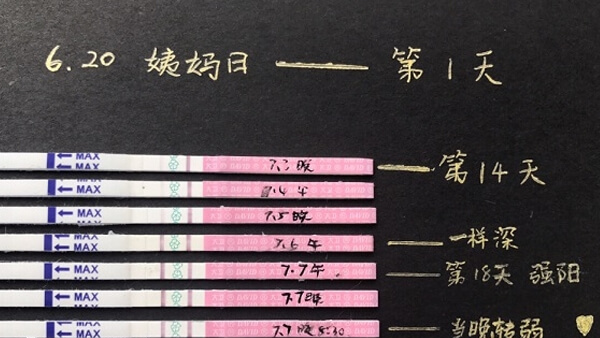 6.20 姨妈日 —— 第1天
MAX 7.3 晚 —— 第14天
MAX 7.4 午
MAX 7.5 晚
MAX 7.6 午 —— 一样深
MAX 7.7 午 —— 第18天 强阳
MAX
MAX 7.7 晚 8:30 —— 当晚转弱